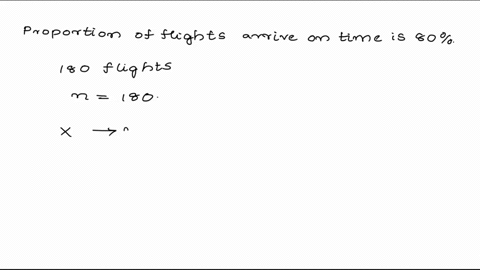 Proportion of flights arrive on time is 80%.
180 flights
n = 180.
X →